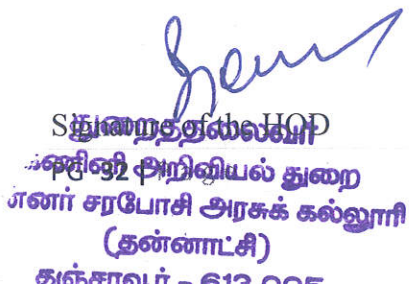 Signature of the HOD
துறைத்தலைவர்
கணினி அறிவியல் துறை
PG 32 |
மன்னர் சரபோசி அரசுக் கல்லூரி
(தன்னாட்சி)
தஞ்சாவூர் - 613 005